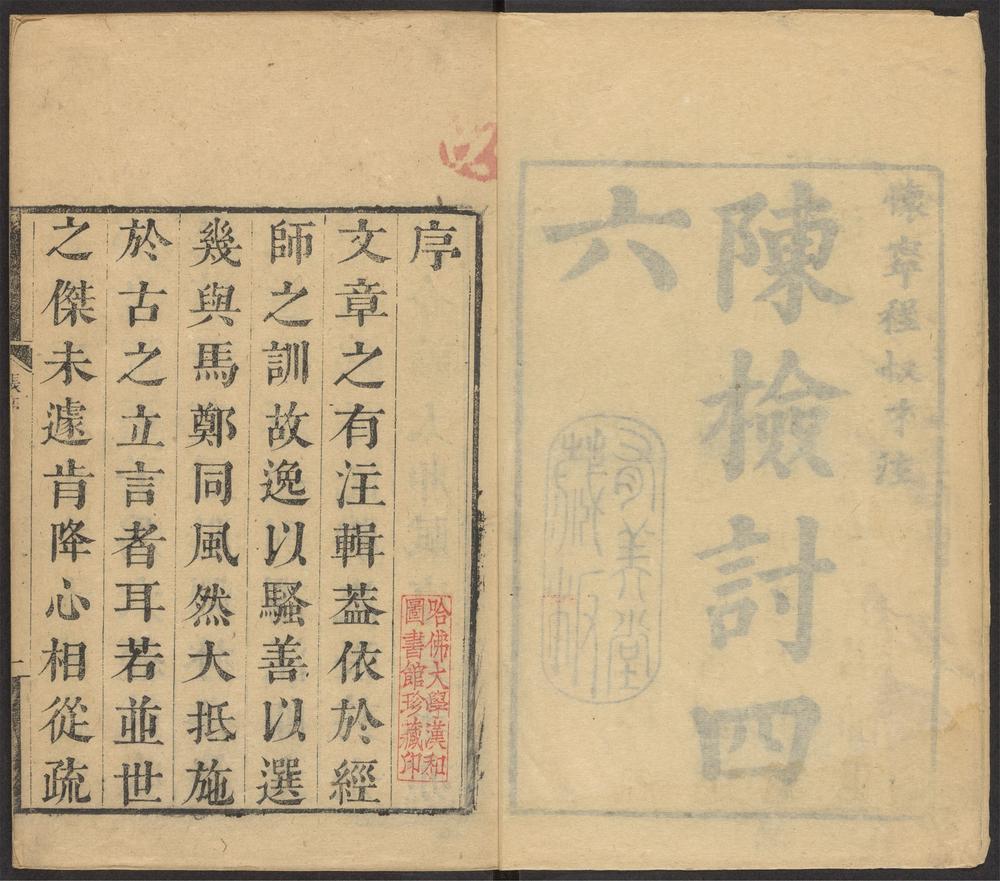 懷寧程叔才注
陳檢討四
六
有美堂
藏板
序
文章之有注輯葢依於經
師之訓故逸以騷善以選
幾與馬鄭同風然大抵施
於古之立言者耳若並世
之傑未遽肯降心相從疏
哈佛大學漢和
圖書館珍藏印